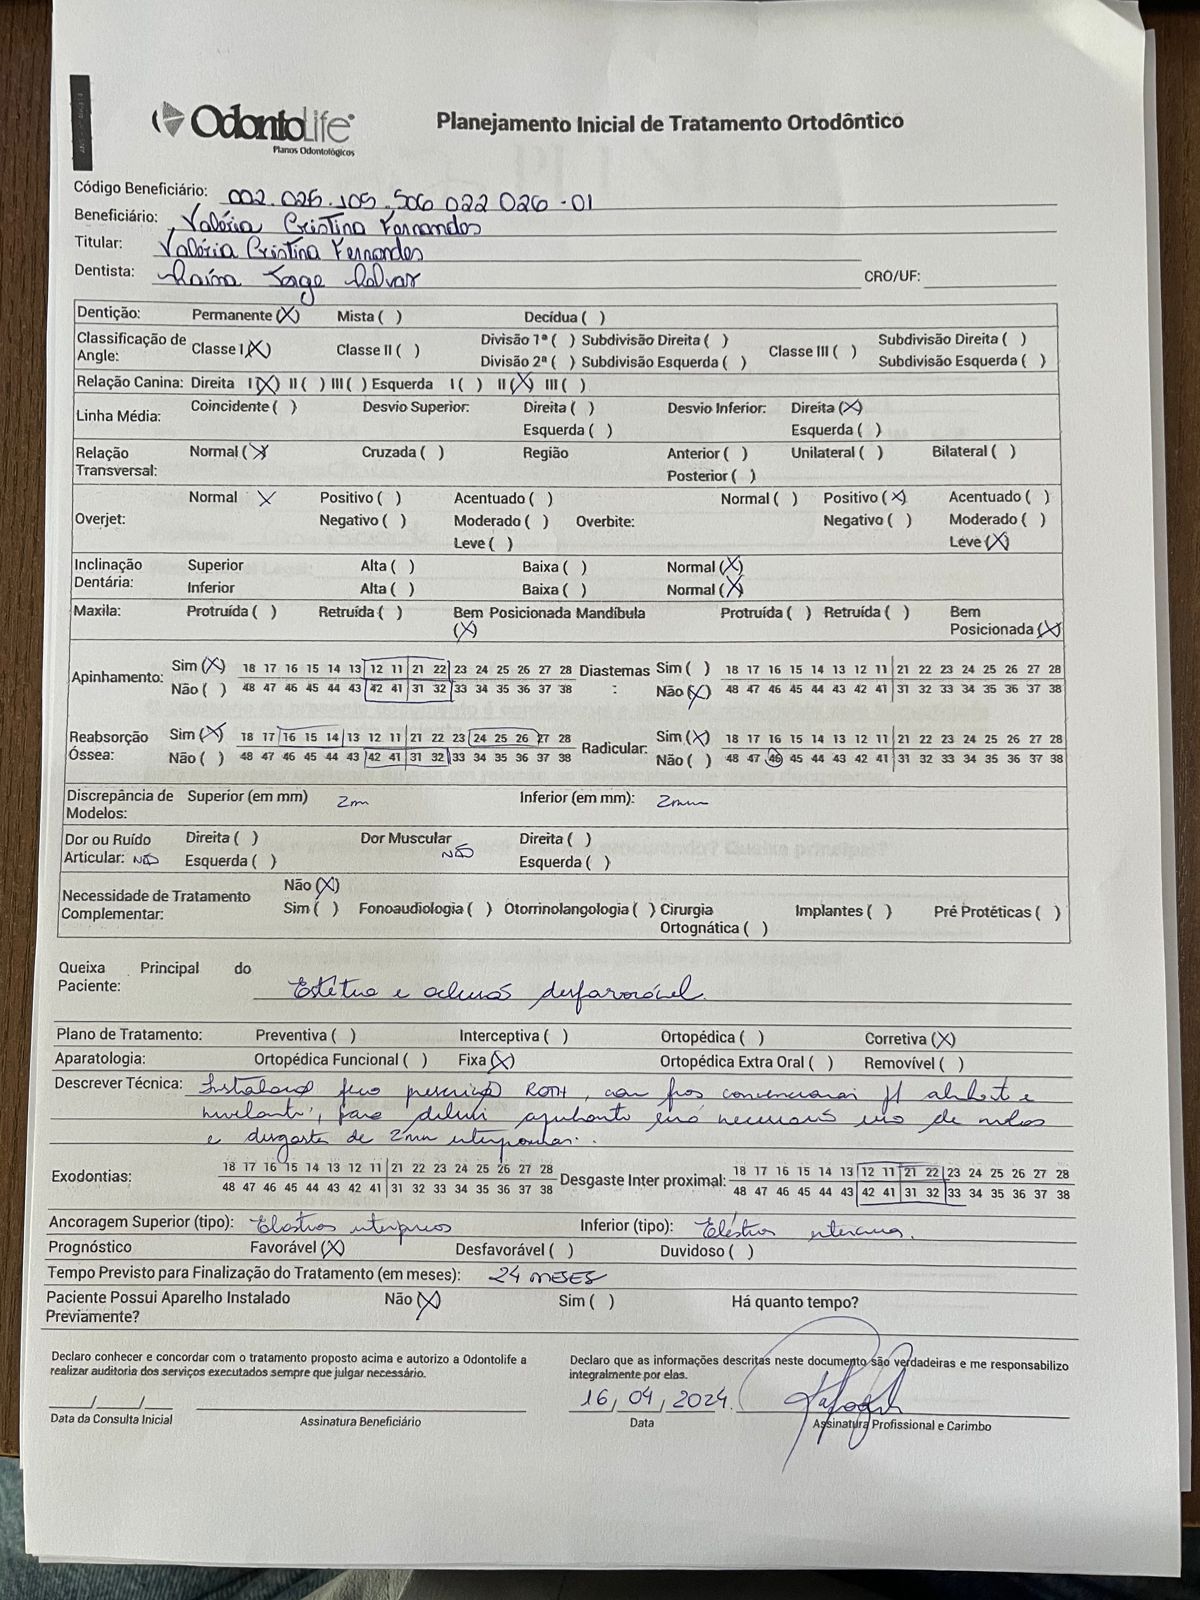 OdontoLife
Planos Odontológicos
Planejamento Inicial de Tratamento Ortodôntico
Código Beneficiário: 002.025.105.506 022 026-01
Beneficiário: Valéria Cristina Fernandes
Titular: Valéria Cristina Fernandes
Dentista: Jorge CRO/UF:
Dentição: Permanente (X) Mista ( ) Decídua ( )
Classificação de Angle: Classe I (X) Classe II ( ) Divisão 1ª ( ) Subdivisão Direita ( ) Classe III ( ) Subdivisão Direita ( )
Divisão 2ª ( ) Subdivisão Esquerda ( ) Subdivisão Esquerda ( )
Relação Canina: Direita I (X) II ( ) III ( ) Esquerda I ( ) II (X) III ( )
Linha Média: Coincidente ( ) Desvio Superior: Direita ( ) Desvio Inferior: Direita (X)
Esquerda ( ) Esquerda ( )
Relação Transversal: Normal (X) Cruzada ( ) Região Anterior ( ) Unilateral ( ) Bilateral ( )
Posterior ( )
Normal X Positivo ( ) Acentuado ( ) Normal ( ) Positivo (X) Acentuado ( )
Overjet: Negativo ( ) Moderado ( ) Overbite: Negativo ( ) Moderado ( )
Leve ( ) Leve (X)
Inclinação Dentária: Superior Alta ( ) Baixa ( ) Normal (X)
Inferior Alta ( ) Baixa ( ) Normal (X)
Maxila: Protruída ( ) Retruída ( ) Bem Posicionada (X) Mandíbula Protruída ( ) Retruída ( ) Bem Posicionada (X)
Apinhamento: Sim (X) 18 17 16 15 14 13 12 11 21 22 23 24 25 26 27 28 Diastemas : Sim ( ) 18 17 16 15 14 13 12 11 21 22 23 24 25 26 27 28
Não ( ) 48 47 46 45 44 43 42 41 31 32 33 34 35 36 37 38 Não (X) 48 47 46 45 44 43 42 41 31 32 33 34 35 36 37 38
Reabsorção Óssea: Sim (X) 18 17 16 15 14 13 12 11 21 22 23 24 25 26 27 28 Radicular: Sim (X) 18 17 16 15 14 13 12 11 21 22 23 24 25 26 27 28
Não ( ) 48 47 46 45 44 43 42 41 31 32 33 34 35 36 37 38 Não ( ) 48 47 46 45 44 43 42 41 31 32 33 34 35 36 37 38
Discrepância de Modelos: Superior (em mm) 2m Inferior (em mm): 2mm
Dor ou Ruído Articular: NÃO Direita ( ) Dor Muscular NÃO Direita ( )
Esquerda ( ) Esquerda ( )
Necessidade de Tratamento Complementar: Não (X)
Sim ( ) Fonoaudiologia ( ) Otorrinolangologia ( ) Cirurgia Ortognática ( ) Implantes ( ) Pré Protéticas ( )
Queixa Principal do Paciente: Estética e oclusão desfavorável.
Plano de Tratamento: Preventiva ( ) Interceptiva ( ) Ortopédica ( ) Corretiva (X)
Aparatologia: Ortopédica Funcional ( ) Fixa (X) Ortopédica Extra Oral ( ) Removível ( )
Descrever Técnica: Instalação fixo prescrição ROTH, com fios convencionais
nivelante, para apinhamento será necessário uso de molas
e desgaste de 2mm interproximar.
Exodontias: 18 17 16 15 14 13 12 11 21 22 23 24 25 26 27 28 Desgaste Inter proximal: 18 17 16 15 14 13 12 11 21 22 23 24 25 26 27 28
48 47 46 45 44 43 42 41 31 32 33 34 35 36 37 38 48 47 46 45 44 43 42 41 31 32 33 34 35 36 37 38
Ancoragem Superior (tipo): Elásticos Inferior (tipo): Elásticos
Prognóstico Favorável (X) Desfavorável ( ) Duvidoso ( )
Tempo Previsto para Finalização do Tratamento (em meses): 24 MESES
Paciente Possui Aparelho Instalado Previamente? Não (X) Sim ( ) Há quanto tempo?
Declaro conhecer e concordar com o tratamento proposto acima e autorizo a Odontolife a
realizar auditoria dos serviços executados sempre que julgar necessário.
Declaro que as informações descritas neste documento são verdadeiras e me responsabilizo
integralmente por elas.
__/__/__ 16/04/2024
Data da Consulta Inicial Assinatura Beneficiário Data Assinatura Profissional e Carimbo